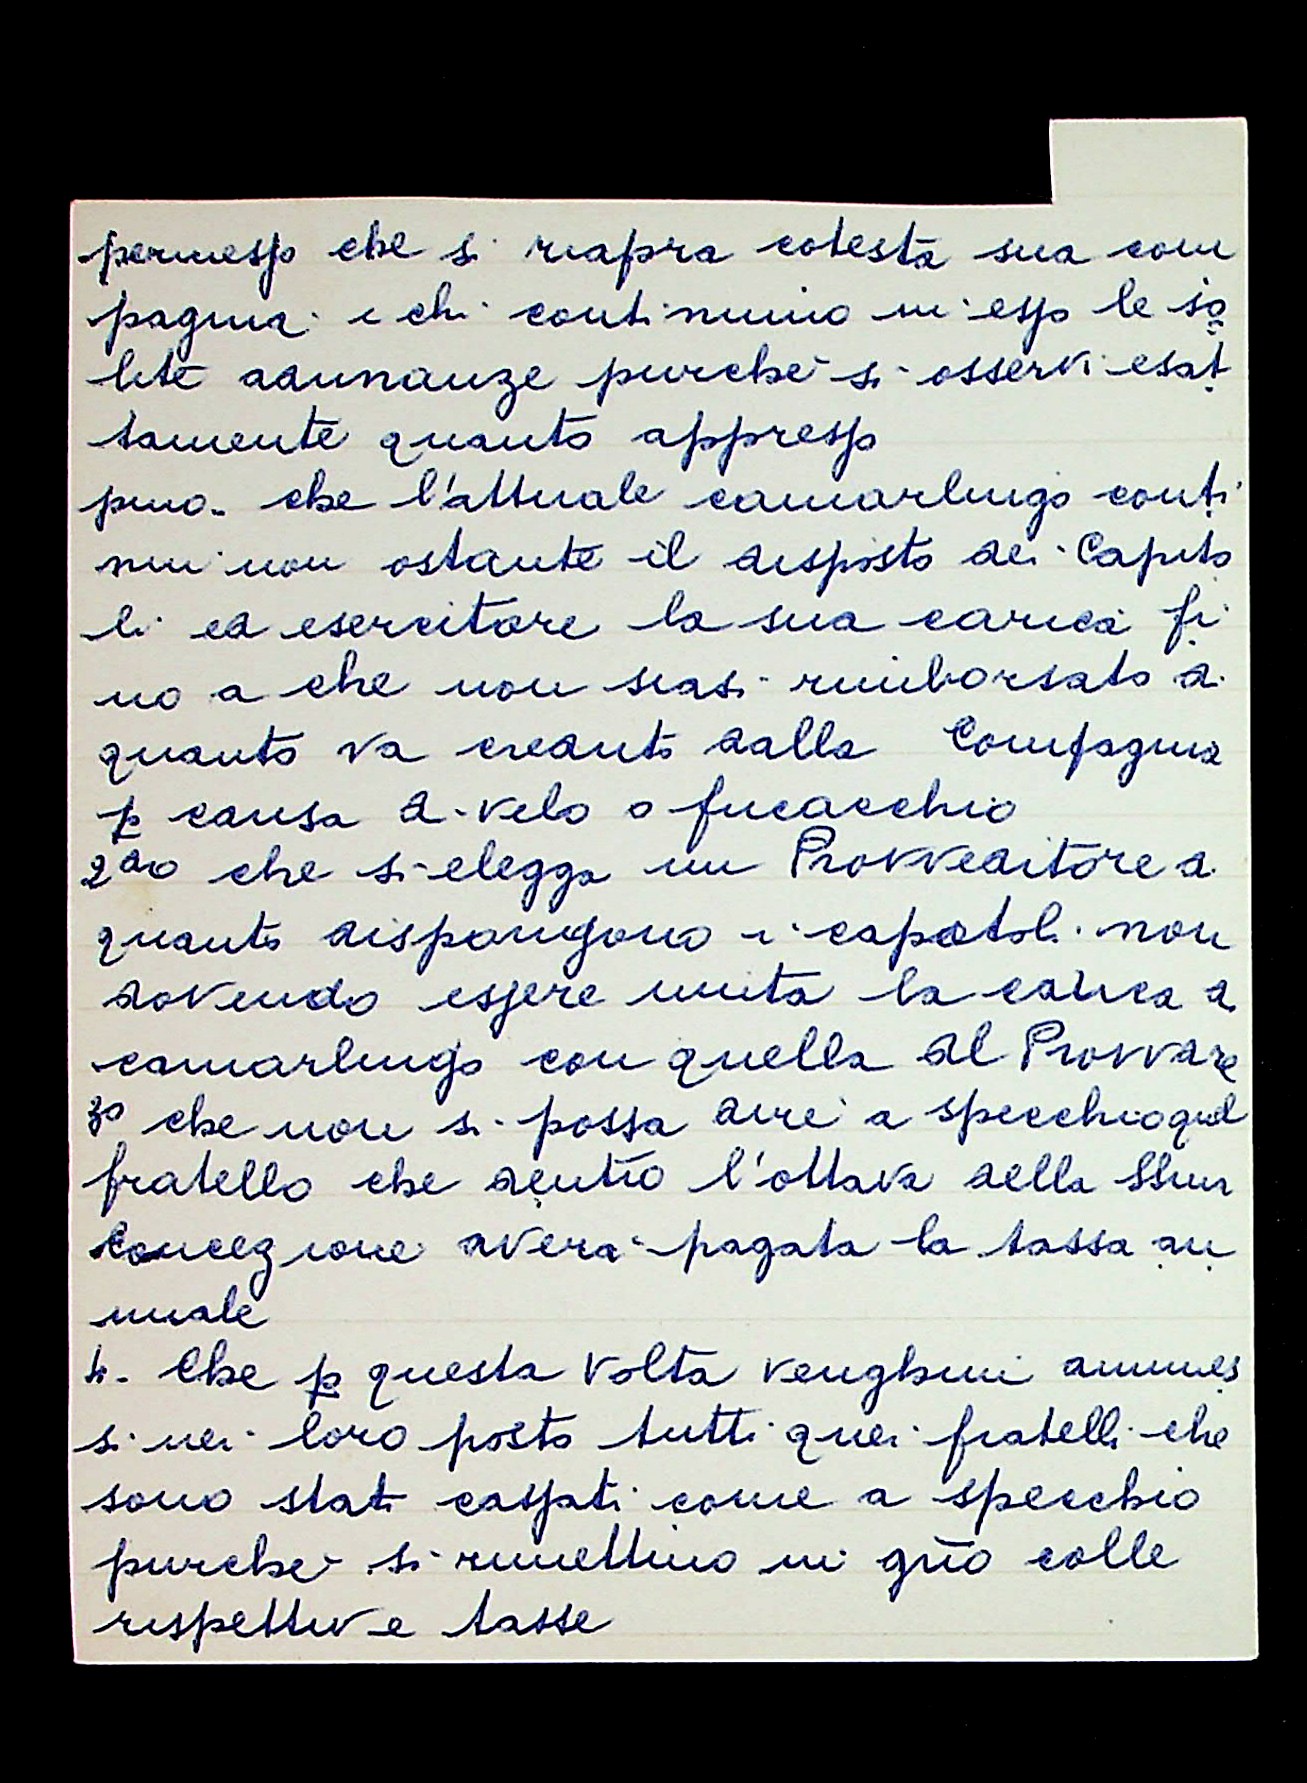 permesso che si riapra cotesta sua com
pagnia e chi continuino in esso le so
lite adunanze purchè si osservi esat
tamente quanto appresso
pmo. che l'attuale camarlingo conti
nui non ostante il disposto dei Capito
li ed esercitare la sua carica fi
no a che non siasi rimborsato di
quanto va creanto dalla Compagnia
p causa di velo o fucacchio
2do che si elegga un Provveditore a
quanto dispongono i capitoli non
dovendo essere unita la carica di
camarlingo con quella del Provvdre
3o che non si possa dire a specchio quel
fratello che dentro l'ottava della SSma
Concezione averà pagata la tassa an
nuale
4. Che p questa volta venghini ammes
si nei loro posto tutti quei fratelli che
sono stati cassati come a specchio
purchè si rimettino in gno colle
rispettive tasse